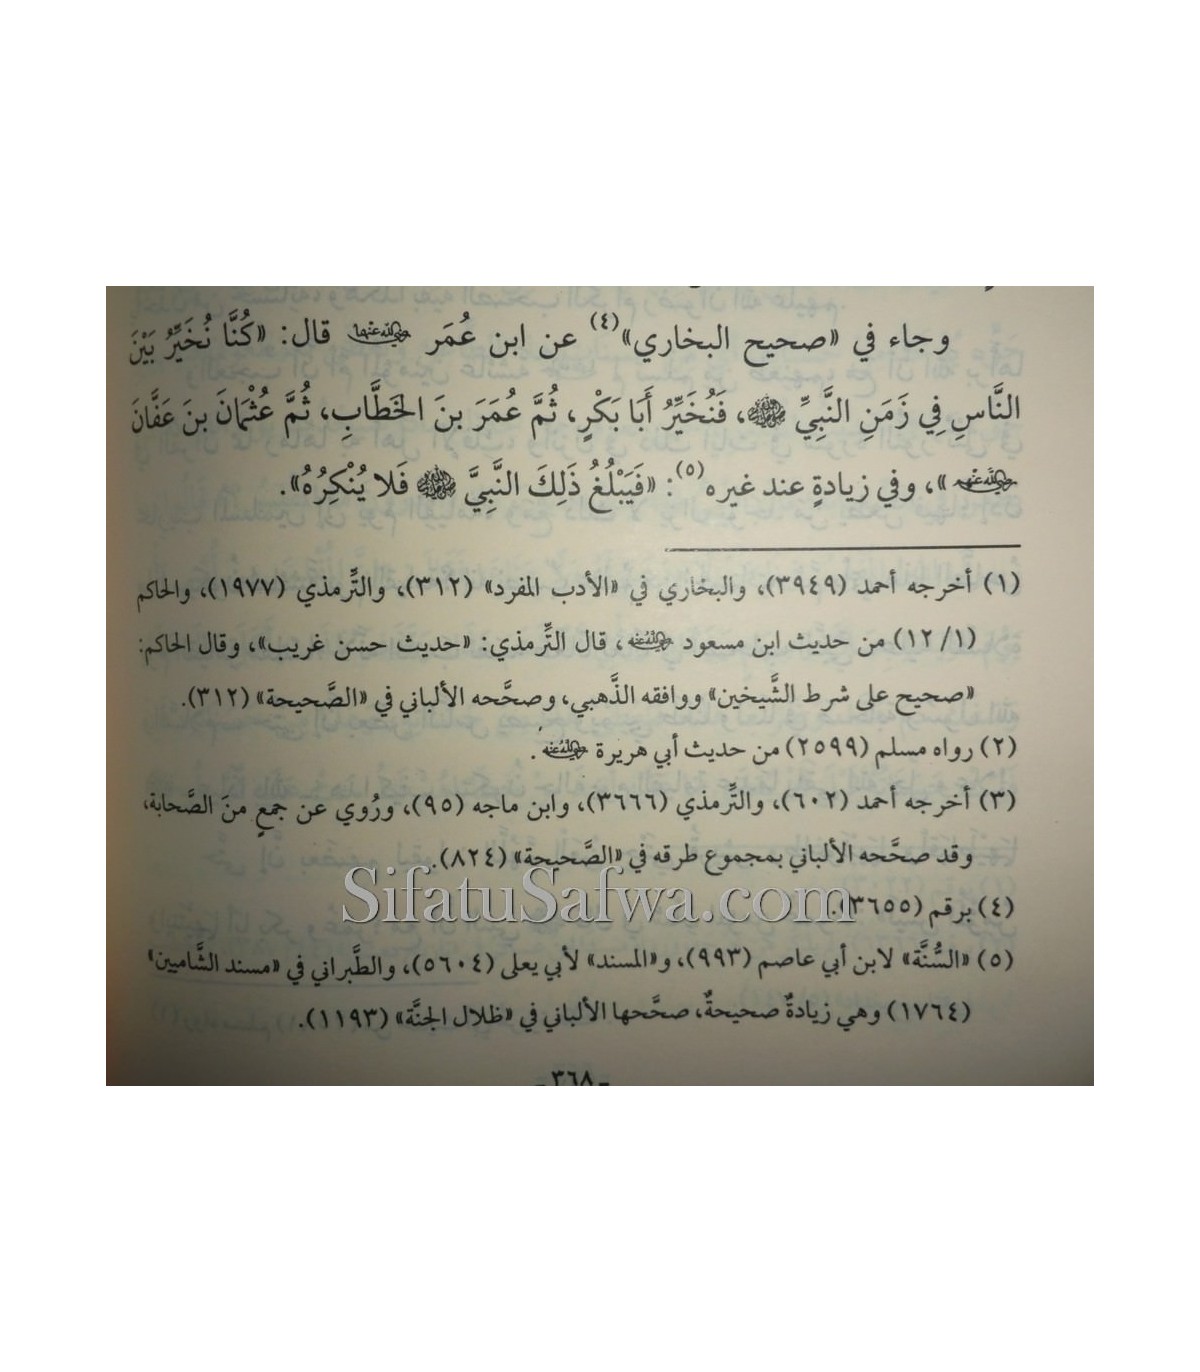 وجاء في «صحيح البخاري»(٤) عن ابن عُمَر رضي الله عنهما قال: «كُنَّا نُخَيِّرُ بَيْنَ
النَّاسِ فِي زَمَنِ النَّبِيِّ ﷺ، فَنُخَيِّرُ أَبَا بَكْرٍ، ثُمَّ عُمَرَ بنَ الخَطَّابِ، ثُمَّ عُثْمَانَ بنَ عَفَّانَ
رضي الله عنهم»، وفي زيادةٍ عند غيره(٥): «فَيَبْلُغُ ذَلِكَ النَّبِيَّ ﷺ فَلا يُنْكِرُهُ».
(١) أخرجه أحمد (٣٩٤٩)، والبخاري في «الأدب المفرد» (٣١٢)، والتِّرمذي (١٩٧٧)، والحاكم
(١/ ١٢) من حديث ابن مسعود رضي الله عنه، قال التِّرمذي: «حديث حسن غريب»، وقال الحاكم:
«صحيح على شرط الشَّيخين» ووافقه الذَّهبي، وصحَّحه الألباني في «الصَّحيحة» (٣١٢).
(٢) رواه مسلم (٢٥٩٩) من حديث أبي هريرة رضي الله عنه.
(٣) أخرجه أحمد (٦٠٢)، والتِّرمذي (٣٦٦٦)، وابن ماجه (٩٥)، ورُوي عن جمعٍ منَ الصَّحابة،
وقد صحَّحه الألباني بمجموع طرقه في «الصَّحيحة» (٨٢٤).
(٤) برقم (٣٦٥٥).
SifatuSafwa.com
(٥) «السُّنَّة» لابن أبي عاصم (٩٩٣)، و«المسند» لأبي يعلى (٥٦٠٤)، والطَّبراني في «مسند الشَّاميين»
(١٧٦٤) وهي زيادةٌ صحيحةٌ، صحَّحها الألباني في «ظلال الجنَّة» (١١٩٣).
- ٣٦٨ -